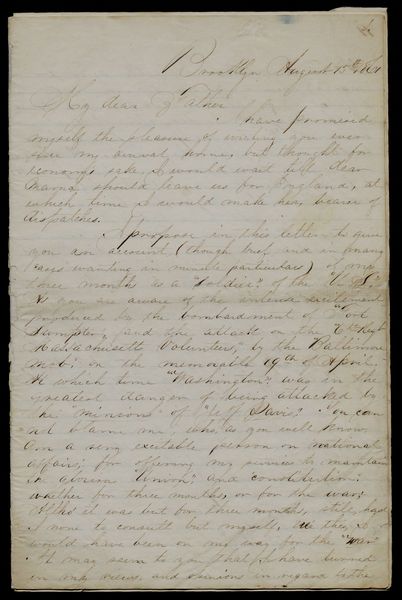 Brooklyn August 15th
My dear Father
I have promised
myself the pleasure of writing you ever
since my arrival home, but thought for
economy sake, I would wait till dear
Mama should leave us for England, at
which time I would make her bearer of
dispatches.
I propose in this letter to give
you an account (though brief and in many
ways wanting in minute particulars) of my
three month as a "Soldier" of the U.S.
As you are aware of the intense excitement
produced by the bombardment of "Fort
Sumpter", and the attack on the 6th Regt
Massachusetts Volunteers, by the Baltimore
mob, on the memorable 19th of April,
At which time "Washington" was in the
greatest danger of being attacked by
the minions of "Jeff Davis". You can
not blame me who, as you well know
am a very excitable person on national
affairs, for offering my services to maintain
the Union and constitution
whether for three months, or for the war.
it was but for three months, still, had
I none to consult but myself, I
would have been on my way for the "war"
It may seem to you that I have turned
in my views and opinions in regard to the